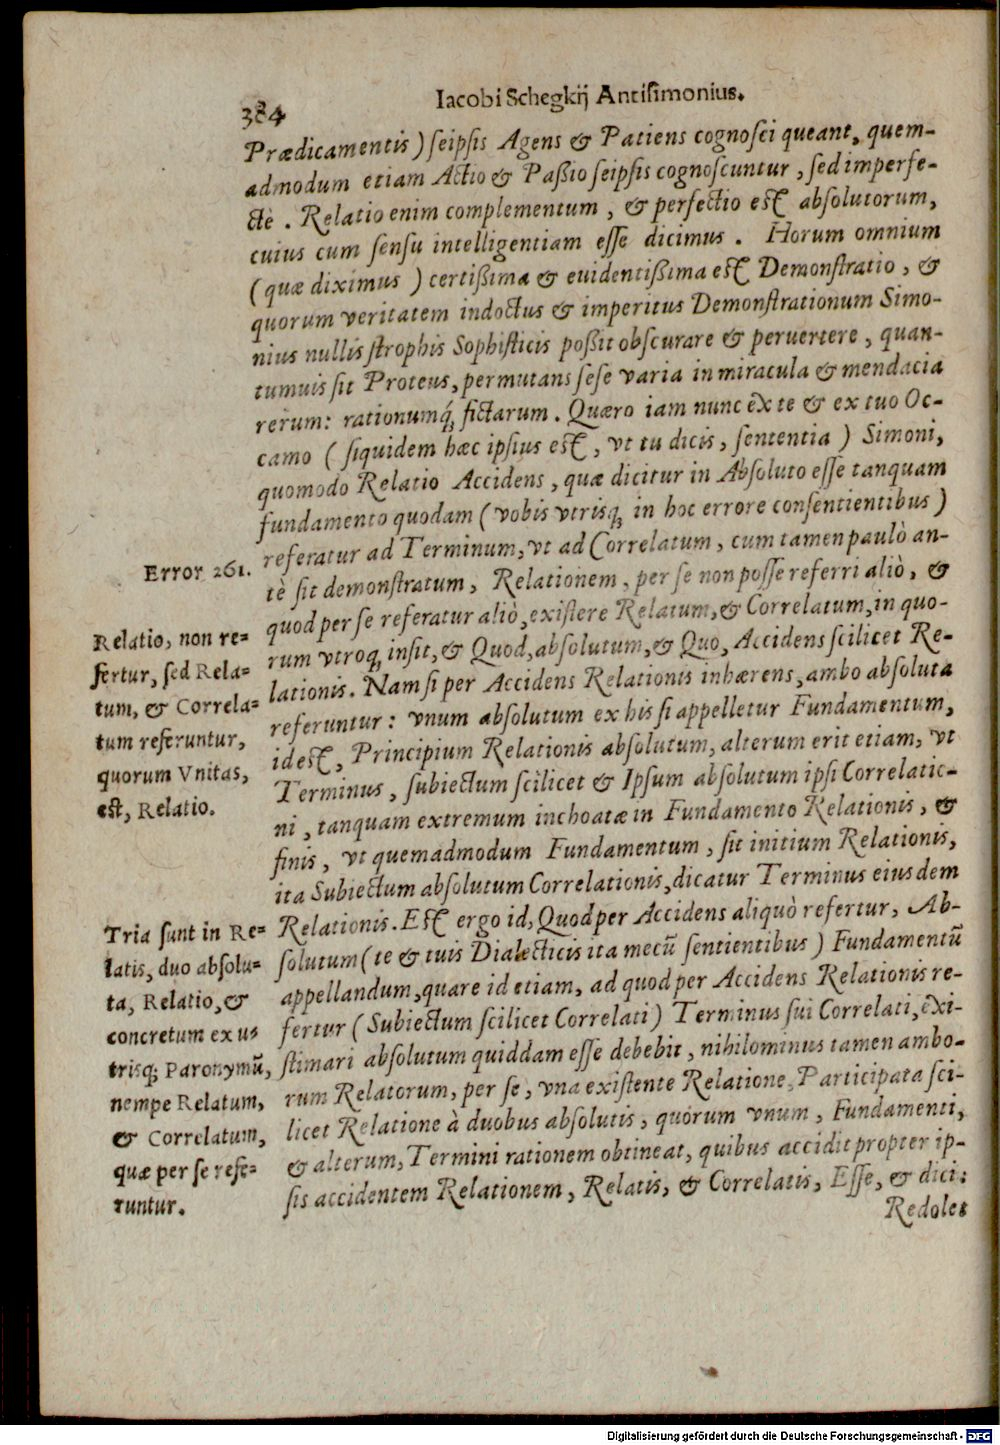 384
Iacobi Schegkij Antisimonius.
Prædicamentis) seipsis Agens & Patiens cognosci queant, quem-
admodum etiam Actio & Paßio seipsis cognoscuntur, sed imperfe-
ctè. Relatio enim complementum, & perfectio est absolutorum,
cuius cum sensu intelligentiam esse dicimus. Horum omnium
(quæ diximus) certißima & euidentißima est Demonstratio, &
quorum veritatem indoctus & imperitus Demonstrationum Simo-
nius nullis strophis Sophisticis poßit obscurare & peruertere, quan-
tumuis sit Proteus, permutans sese varia in miracula & mendacia
rerum: rationumq́; fictarum. Quæro iam nunc ex te & ex tuo Oc-
camo (siquidem hæc ipsius est, vt tu dicis, sententia) Simoni,
quomodo Relatio Accidens, quæ dicitur in Absoluto esse tanquam
fundamento quodam (vobis vtrisq; in hoc errore consentientibus)
referatur ad Terminum, vt ad Correlatum, cum tamen paulò an-
tè sit demonstratum, Relationem, per se non posse referri aliò, &
quod per se referatur aliò, existere Relatum, & Correlatum, in quo-
rum vtroq; insit, & Quod, absolutum, & Quo, Accidens scilicet Re-
lationis. Nam si per Accidens Relationis inhærens, ambo absoluta
referuntur: vnum absolutum ex his si appelletur Fundamentum,
id est, Principium Relationis absolutum, alterum erit etiam, vt
Terminus, subiectum scilicet & Ipsum absolutum ipsi Correlatio-
ni, tanquam extremum inchoatæ in Fundamento Relationis, &
finis, vt quemadmodum Fundamentum, sit initium Relationis,
ita Subiectum absolutum Correlationis, dicatur Terminus eiusdem
Relationis. Est ergo id, Quod per Accidens aliquò refertur, Ab-
solutum (te & tuis Dialecticis ita mecũ sentientibus) Fundamentũ
appellandum, quare id etiam, ad quod per Accidens Relationis re-
fertur (Subiectum scilicet Correlati) Terminus sui Correlati, exi-
stimari absolutum quiddam esse debebit, nihilominus tamen ambo-
rum Relatorum, per se, vna existente Relatione, Participata sci-
licet Relatione à duobus absolutis, quorum vnum, Fundamenti,
& alterum, Termini rationem obtineat, quibus accidit propter ip-
sis accidentem Relationem, Relatis, & Correlatis, Esse, & dici:
Redolet
Error 261.
Relatio, non re-
fertur, sed Rela-
tum, & Correla-
tum referuntur,
quorum Vnitas,
est, Relatio.
Tria sunt in Re-
latis, duo absolu-
ta, Relatio, &
concretum ex us
trisq; Paronymũ,
nempe Relatum,
& Correlatum,
quæ per se refe-
runtur.
Digitalisierung gefördert durch die Deutsche Forschungsgemeinschaft - DFG